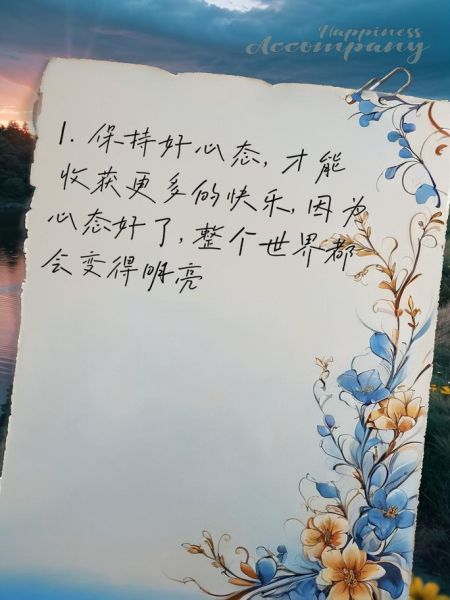 Happiness
Accompany
1. 保持好心态, 才能
收获更多的快乐, 因为
心态好了, 整个世界都
会变得明亮